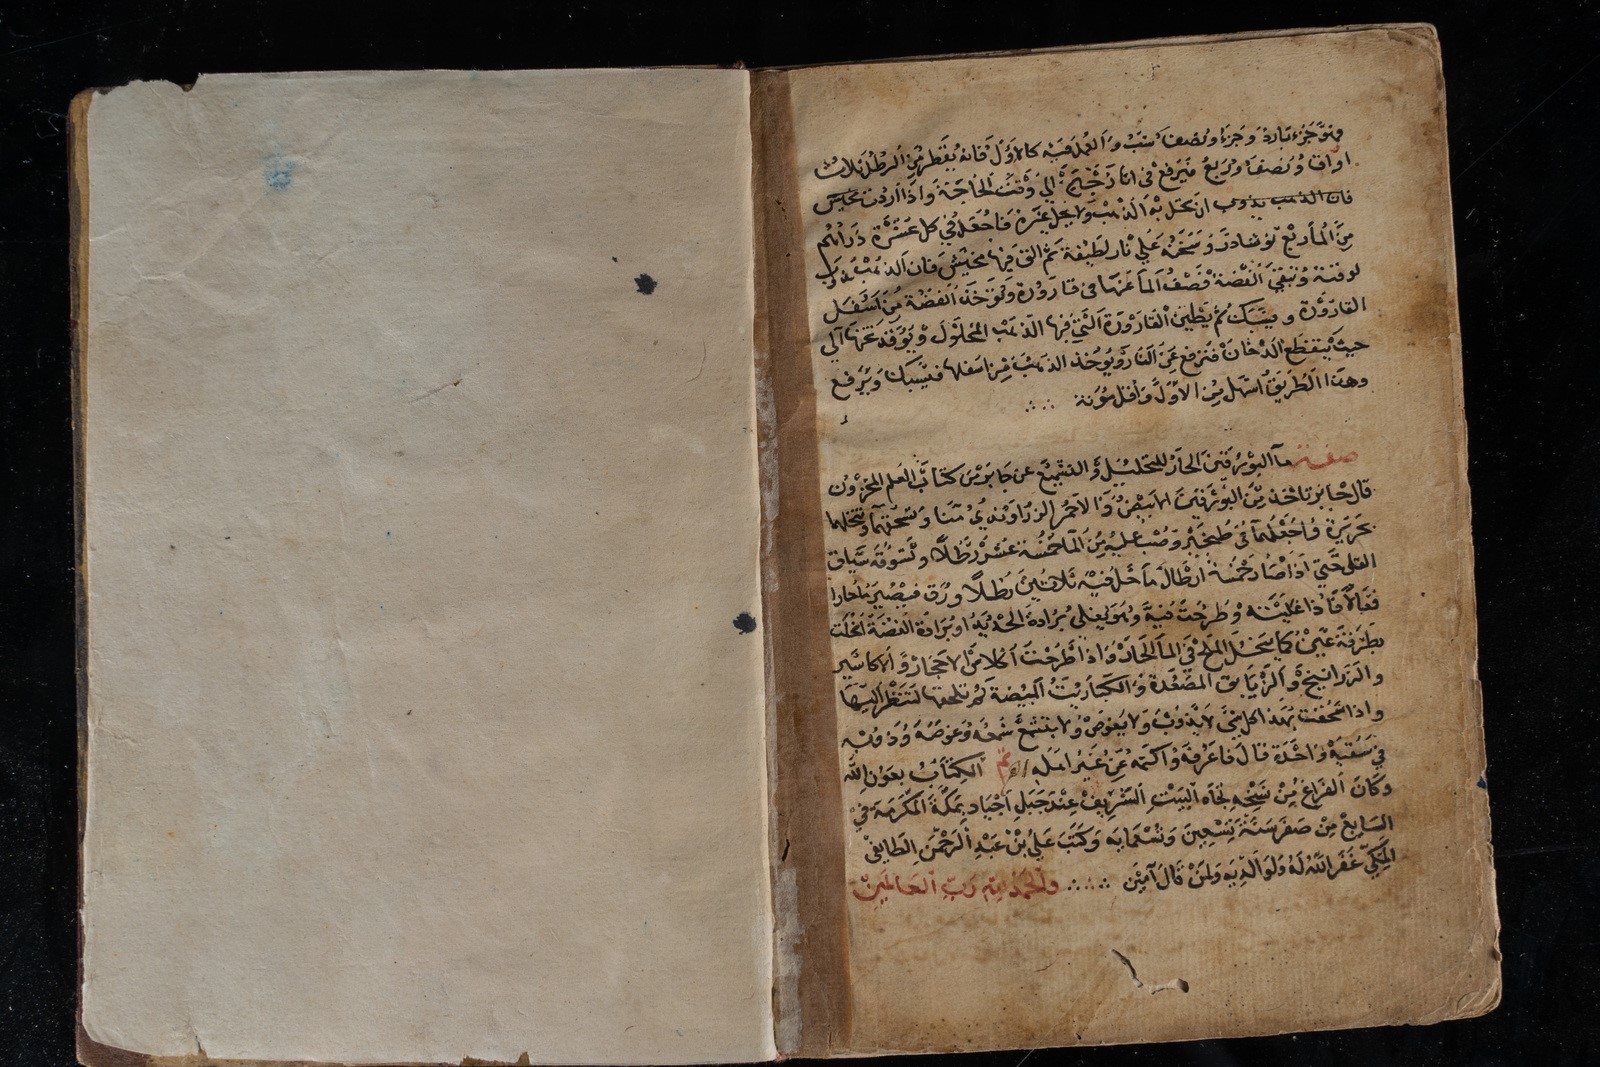 وهو جزء بارد وجزء ونصف شب والعمل فيه كالاول فانه يقطر من الرطل ثلاث
اواق ونصف وربع فيرفع في انا زجاج الي وقت الحاجة واذا اردت
فان الذهب يذوب ان تحل به الذهب ولا يحل غيره فاجعل في كل عشرة دراهم
من الما ربع نوشادر وسخنه علي نار لطيفة ثم الق فيها فان الذهب يذوب
لوقته وتبقي الفضة فصف الما عنها في قارورة وتوخذ الفضة من اسفل
القارورة وتسبك ثم يطين القارورة التي فيها الذهب المحلول ويوقد تحتها الي
حيث ينقطع الدخان فترفع عن النار ويوخذ الذهب من اسفلها فيسبك ويرفع
وهذا الطريق اسهل من الاول واقل مؤنة
صفة ما البورقين الحار للتحليل والتشميع عن جابر من كتاب العلم المخزون
قال جابر تاخذ من البورقين الابيض والاحمر الزراوندي منا وتسحقهما وتنخلهما
بحريرة واجعلهما في طنجير وصب عليه من الما خمسة عشر رطلا وتسوقه سياق
القلي حتي اذا صار خمسة ارطال ما حل فيه ثلاثين رطلا ورق فيصير ما حارا
فعالا فاذا غليته وطرحت فيه وهو يغلي برادة الحديد او برادة الفضة انحلت
بطرفة عين كما ينحل الملح في الما الحار واذا طرحت اكلاس الاحجار والاكاسير
والزرانيخ والزيابق المصعدة والكباريت المبيضة ثم تلحقها لتنظر اليها
واذا سحقت بهذا كل شي لا يذوب ولا يغوص ولا يتشمع شمعه وغوصه وذوبه
في سقية واحدة قال فاعرفه واكتمه عن غير اهله تم الكتاب بعون الله
وكان الفراغ من نسخه تجاه البيت الشريف عند جبل اجياد بمكة المكرمة في
السابع من صفر سنة تسعين وتسعمايه وكتب علي بن عبد الرحمن الطايفي
المكي غفر الله له ولوالديه ولمن قال آمين والحمد لله رب العالمين